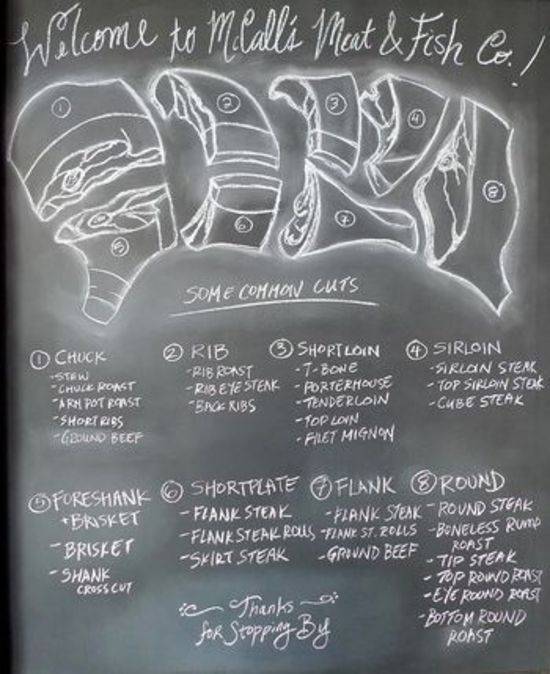 Welcome to McCall's Meat & Fish Co.!
1
2
3
4
5
6
7
8
SOME COMMON CUTS
1 CHUCK
-STEW
-CHUCK ROAST
-ARM POT ROAST
-SHORT RIBS
-GROUND BEEF
2 RIB
-RIB ROAST
-RIB EYE STEAK
-BACK RIBS
3 SHORTLOIN
- T-BONE
- PORTERHOUSE
- TENDERLOIN
- TOP LOIN
- FILET MIGNON
4 SIRLOIN
-SIRLOIN STEAK
- TOP SIRLOIN STEAK
- CUBE STEAK
5 FORESHANK
+BRISKET
- BRISKET
- SHANK
CROSS CUT
6 SHORTPLATE
- FLANK STEAK
- FLANK STEAK ROLLS
- SKIRT STEAK
7 FLANK
- FLANK STEAK
-FLANK ST. ROLLS
- GROUND BEEF
8 ROUND
- ROUND STEAK
-BONELESS RUMP
ROAST
- TIP STEAK
- TOP ROUND ROAST
- EYE ROUND ROAST
-BOTTOM ROUND
ROAST
Thanks
for Stopping By